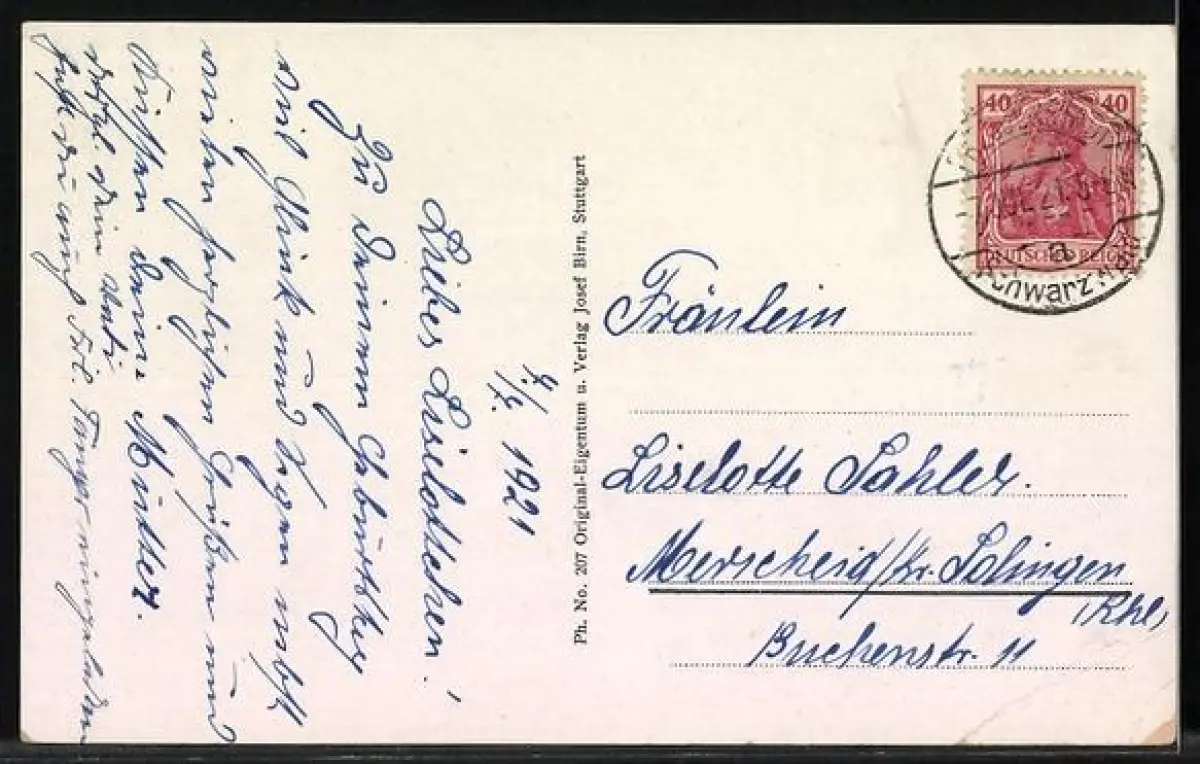 4/7. 1921
Liebes Liselottchen!
Zu Deinem Geburtstag
viel Glück und Segen nebst
vielen herzlichen Grüßen und
Küssen Deine Mutter.
dein
Frl.
Ph. No. 207 Original-Eigentum u. Verlag Josef Birn, Stuttgart
40 40
DEUTSCHES REICH
a
Schwarzwald
Fräulein
Liselotte Sahler.
Merscheid/Kr. Solingen
(Rhl)
Buchenstr. 11